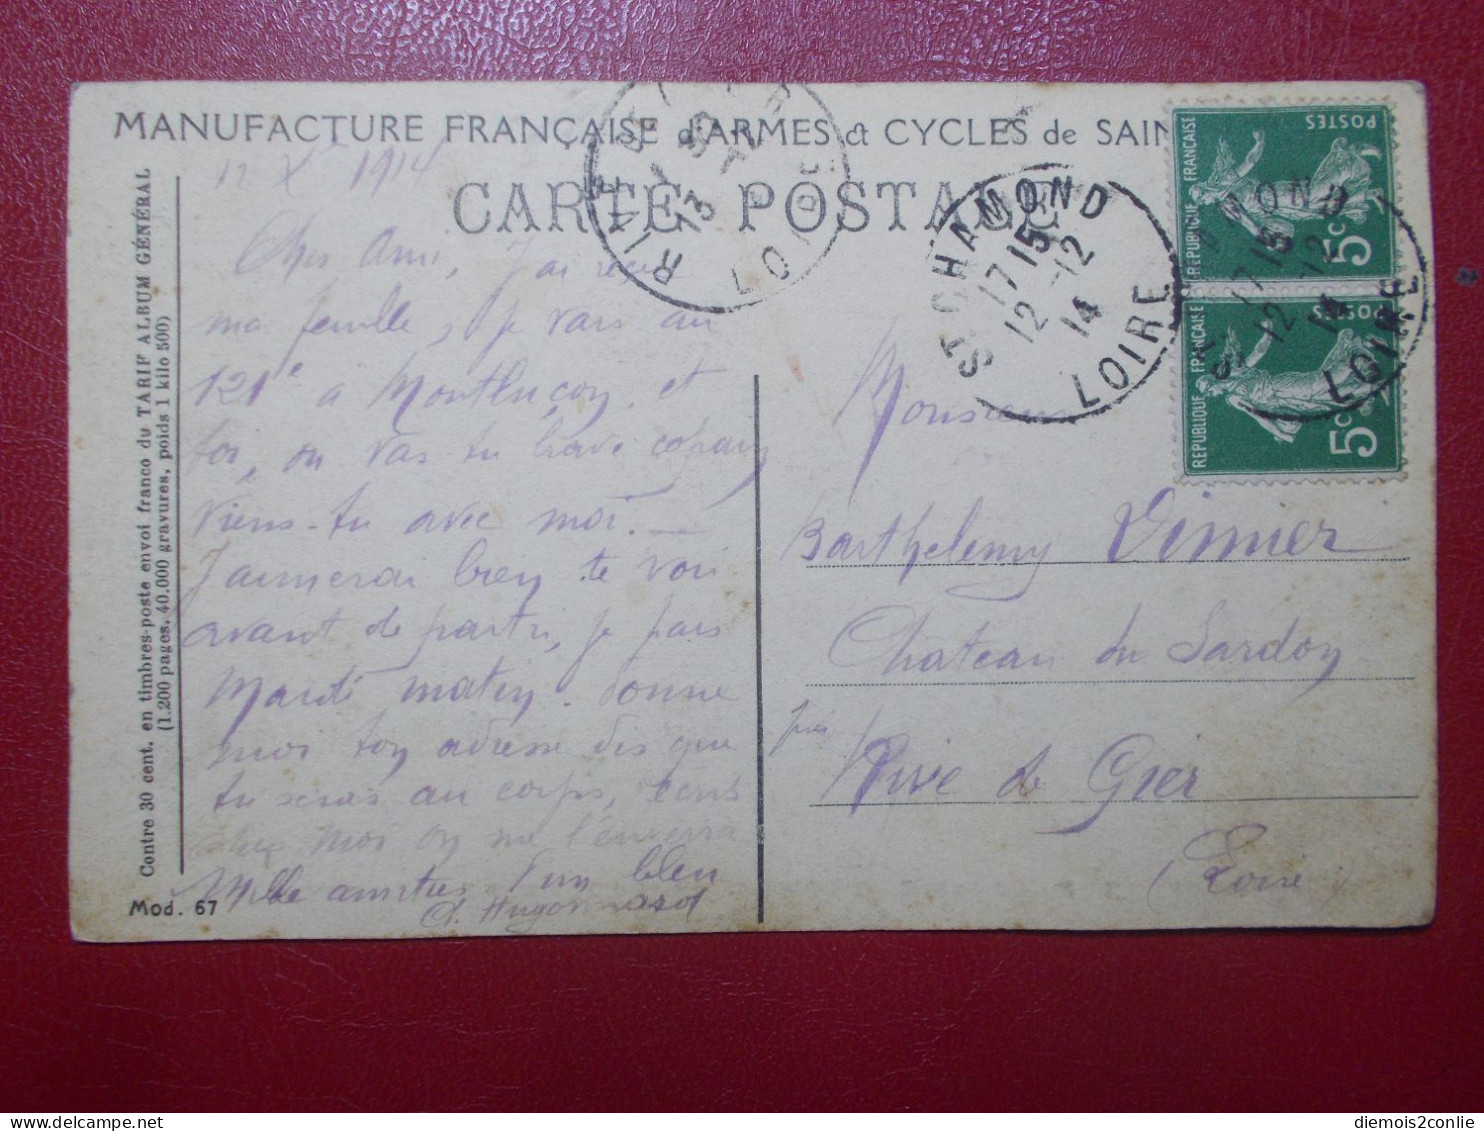 MANUFACTURE FRANÇAISE d'ARMES & CYCLES de SAIN
CARTE POSTALE
12 X 1914
Cher Ami, J'ai reçu
ma feuille, je vais au
121e à Montluçon, et
toi, ou vas tu brave copain
viens-tu avec moi. —
J'aimerai bien te voir
avant de partir, je pars
Mardi matin. Donne
moi ton adresse dès que
tu seras au corps, écris
chez moi on me l'enverra
Mille amitiés d'un bleu
Contre 30 cent. en timbres-poste envoi franco du TARIF ALBUM GÉNÉRAL
(1.200 pages, 40.000 gravures, poids 1 kilo 500)
Mod. 67
RIVE DE GIER
13
LOIRE
ST CHAMOND
17 15
12 - 12
14
LOIRE
REPUBLIQUE FRANÇAISE
POSTES
5c
REPUBLIQUE FRANÇAISE
POSTES
5c
MOND
17 15
12 - 12
14
LOIRE
Monsieur
Barthelemy Vinnier
Château du Sardon
près
Rive de Gier
(Loire)
diemois2conlie